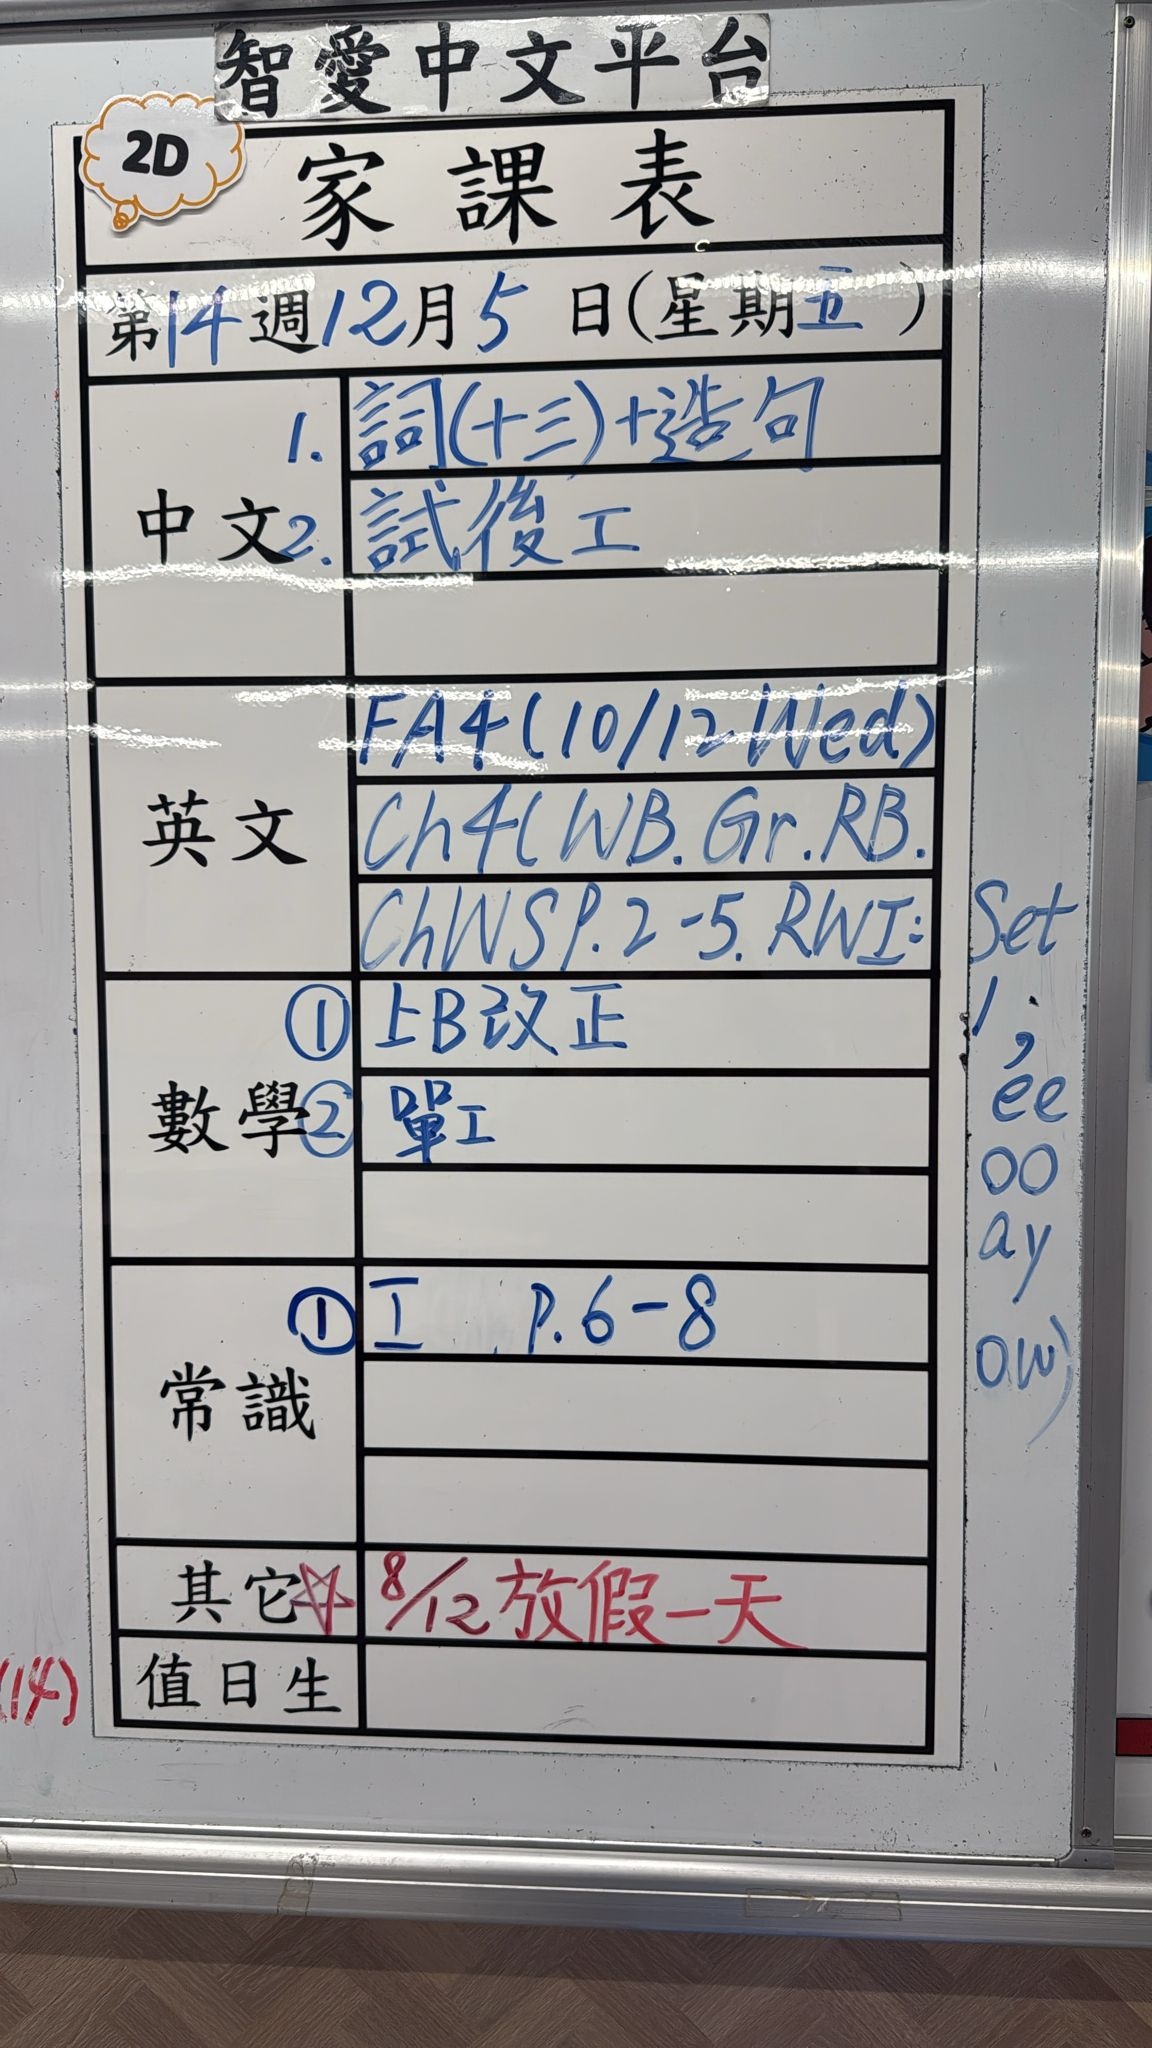 智愛中文平台
2D
家課表
第14週12月5日(星期五)
中文
1. 詞(十三)+造句
2. 試後工
英文
FA4(10/12 Wed)
Ch4(WB. Gr. RB.
ChWS P.2-5. RWI: Set
1;
ee
oo
ay
ow)
數學
① 上B改正
② 單工
常識
① 工 P.6-8
其它 ☆ 8/12 放假一天
值日生
(14)